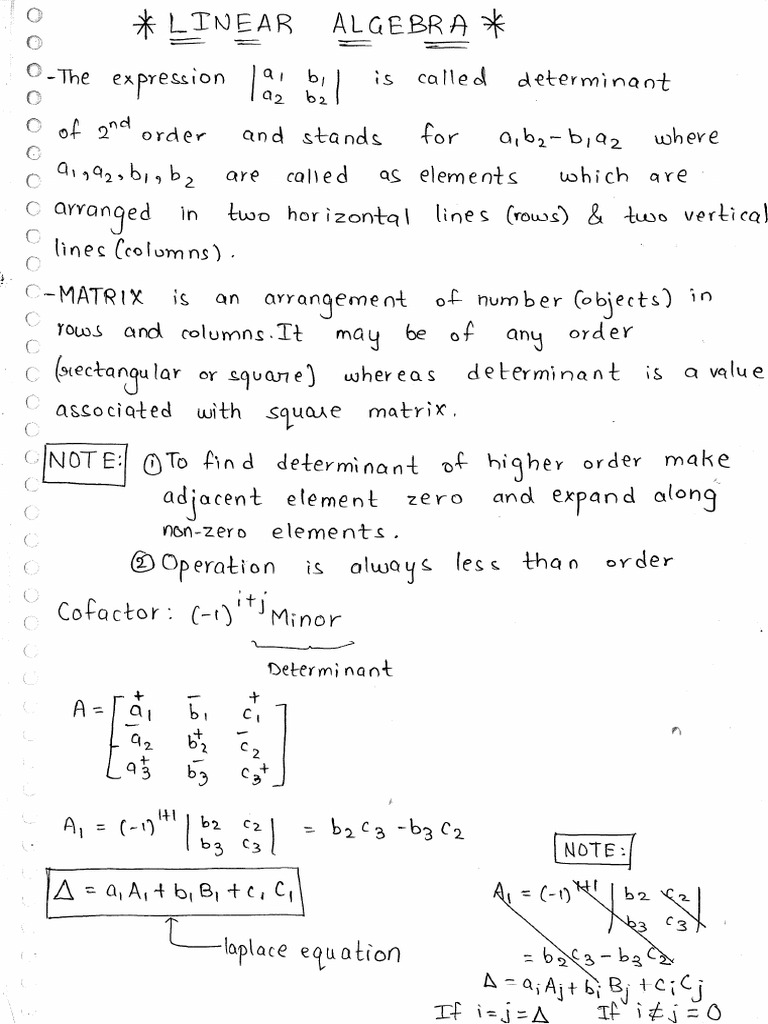 * LINEAR ALGEBRA *
-The expression |a₁ b₁| is called determinant
|a₂ b₂|
of 2nd order and stands for a₁b₂-b₁a₂ where
a₁,a₂,b₁,b₂ are called as elements which are
arranged in two horizontal lines (rows) & two vertical
lines (columns).
-MATRIX is an arrangement of number (objects) in
rows and columns. It may be of any order
(rectangular or square) whereas determinant is a value
associated with square matrix.
NOTE: ① To find determinant of higher order make
adjacent element zero and expand along
non-zero elements.
② Operation is always less than order
Cofactor: (-1)^i+j Minor
Determinant
A = [a₁⁺ b₁⁻ c₁⁺
a₂⁻ b₂⁺ c₂⁻
a₃⁺ b₃⁻ c₃⁺]
A₁ = (-1)^1+1 |b₂ c₂| = b₂c₃ - b₃c₂
|b₃ c₃|
Δ = a₁A₁ + b₁B₁ + c₁C₁
laplace equation
NOTE:
A₁ = (-1)^1+1 |b₂ c₂|
|b₃ c₃|
= b₂c₃ - b₃c₂
Δ = aᵢAⱼ + bᵢBⱼ + cᵢCⱼ
If i = j = Δ If i ≠ j = 0